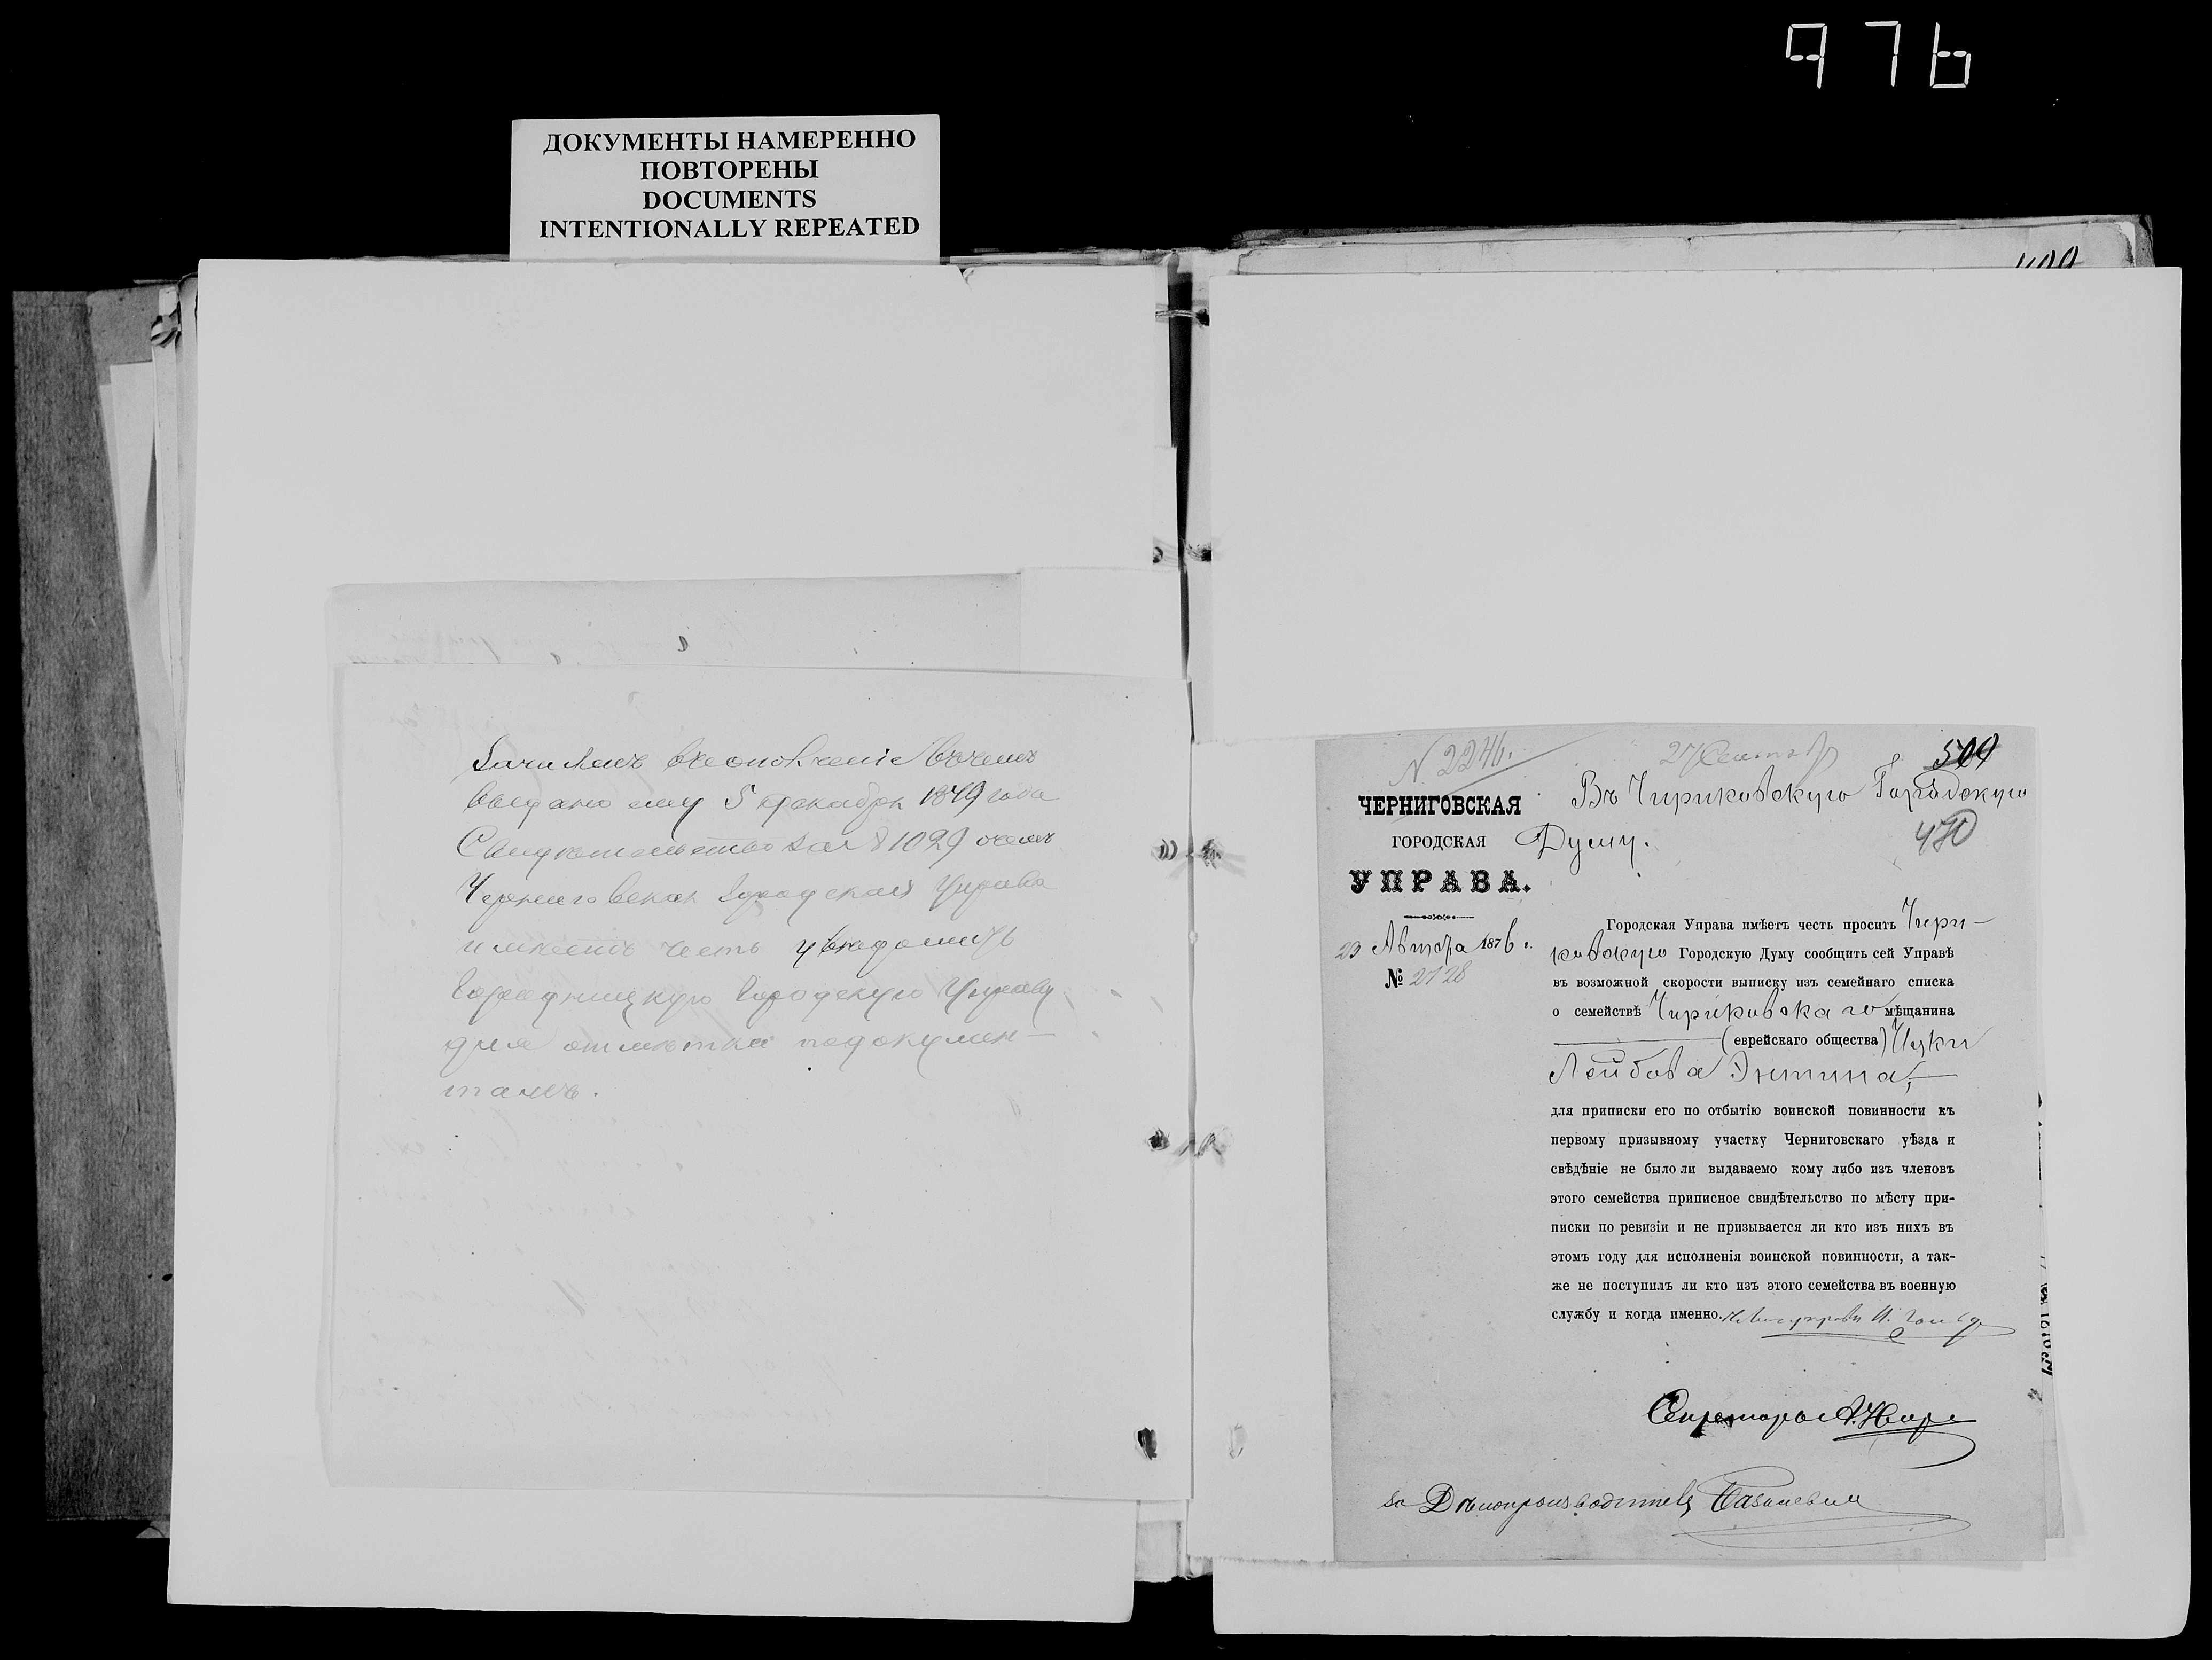 976
ДОКУМЕНТЫ НАМЕРЕННО
ПОВТОРЕНЫ
DOCUMENTS
INTENTIONALLY REPEATED
выдано ему 5 декабря 1879 года
Свидетельство за № 1029 о чемъ
Черниговская Городская Управа
имѣетъ честь увѣдомить
Городницкую Городскую Управу
для отмѣтки по докумен-
тамъ.
N 2246.
509
Въ Чириковскую Городскую
Думу.
470
ЧЕРНИГОВСКАЯ
ГОРОДСКАЯ
УПРАВА.
23 Августа 1876 г.
№ 2128
Городская Управа имѣетъ честь просить Чири-
ковскую Городскую Думу сообщить сей Управѣ
въ возможной скорости выписку изъ семейнаго списка
о семействѣ Чириковскаго мѣщанина
(еврейскаго общества) Ицки
Лейбова Энтина,
для приписки его по отбытію воинской повинности къ
первому призывному участку Черниговскаго уѣзда и
свѣдѣніе не было ли выдаваемо кому либо изъ членовъ
этого семейства приписное свидѣтельство по мѣсту при-
писки по ревизіи и не призывается ли кто изъ нихъ въ
этомъ году для исполненія воинской повинности, а так-
же не поступилъ ли кто изъ этого семейства въ военную
службу и когда именно.
Секретарь
за Дѣлопроизводителя